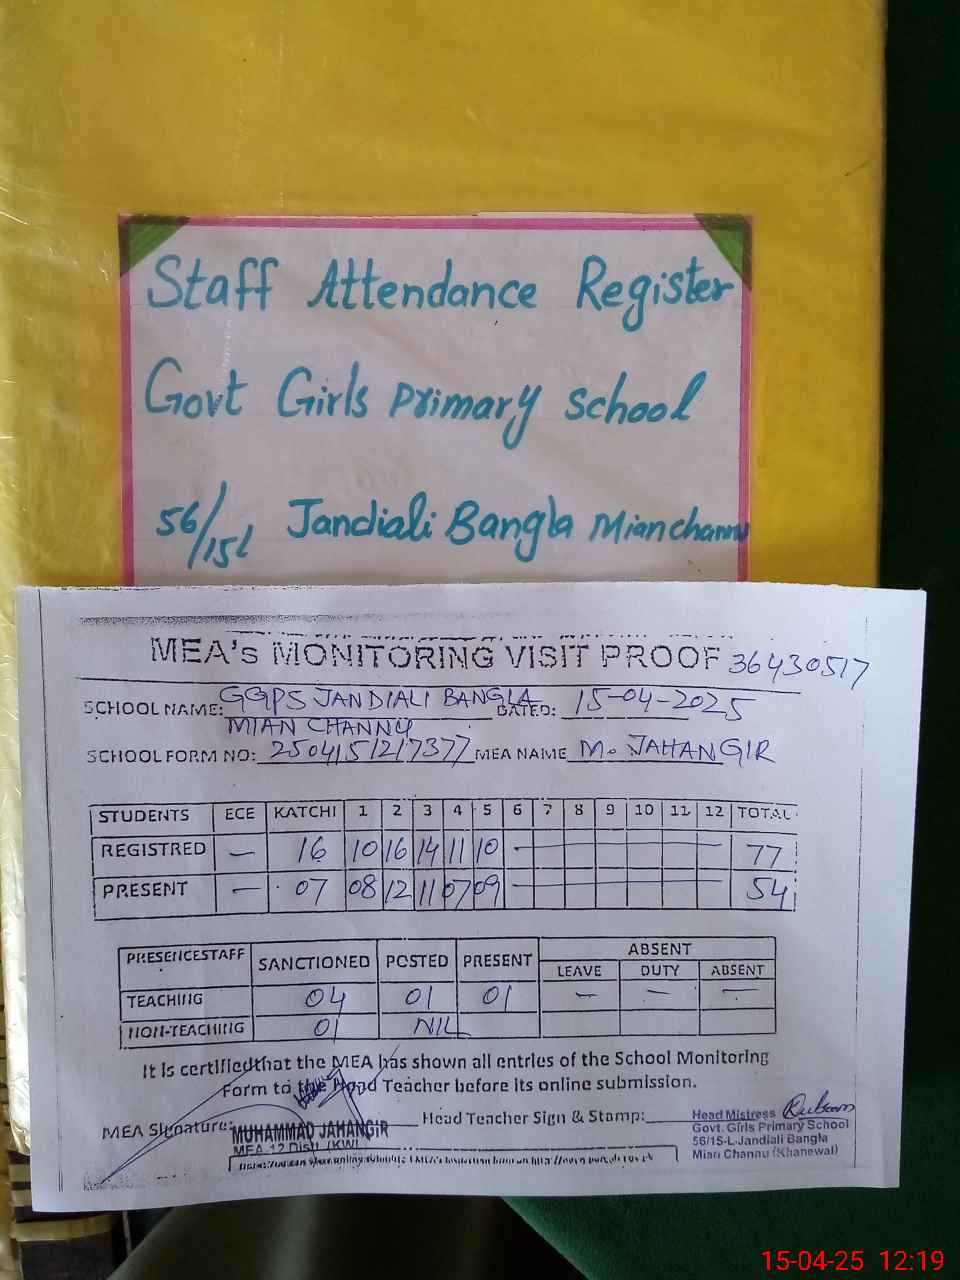 Staff Attendance Register
Govt Girls Primary School
56/15L Jandiali Bangla Mianchannu
MEA's MONITORING VISIT PROOF 36430517
SCHOOL NAME: GGPS JANDIALI BANGLA DATED: 15-04-2025
MIAN CHANNU
SCHOOL FORM NO: 2504151217377 MEA NAME M. JAHANGIR
STUDENTS ECE KATCHI 1 2 3 4 5 6 7 8 9 10 11 12 TOTAL
REGISTRED — 16 10 16 14 11 10 — 77
PRESENT — 07 08 12 11 07 09 — 54
PRESENCESTAFF SANCTIONED POSTED PRESENT ABSENT
LEAVE DUTY ABSENT
TEACHING 04 01 01 — — —
NON-TEACHING 01 NIL
It is certified that the MEA has shown all entries of the School Monitoring
Form to the Head Teacher before its online submission.
MEA Signature: MUHAMMAD JAHANGIR Head Teacher Sign & Stamp: Head Mistress
MEA 12 Distt (KWL) Govt. Girls Primary School
56/15-L Jandiali Bangla
Mian Channu (Khanewal)
15-04-25 12:19